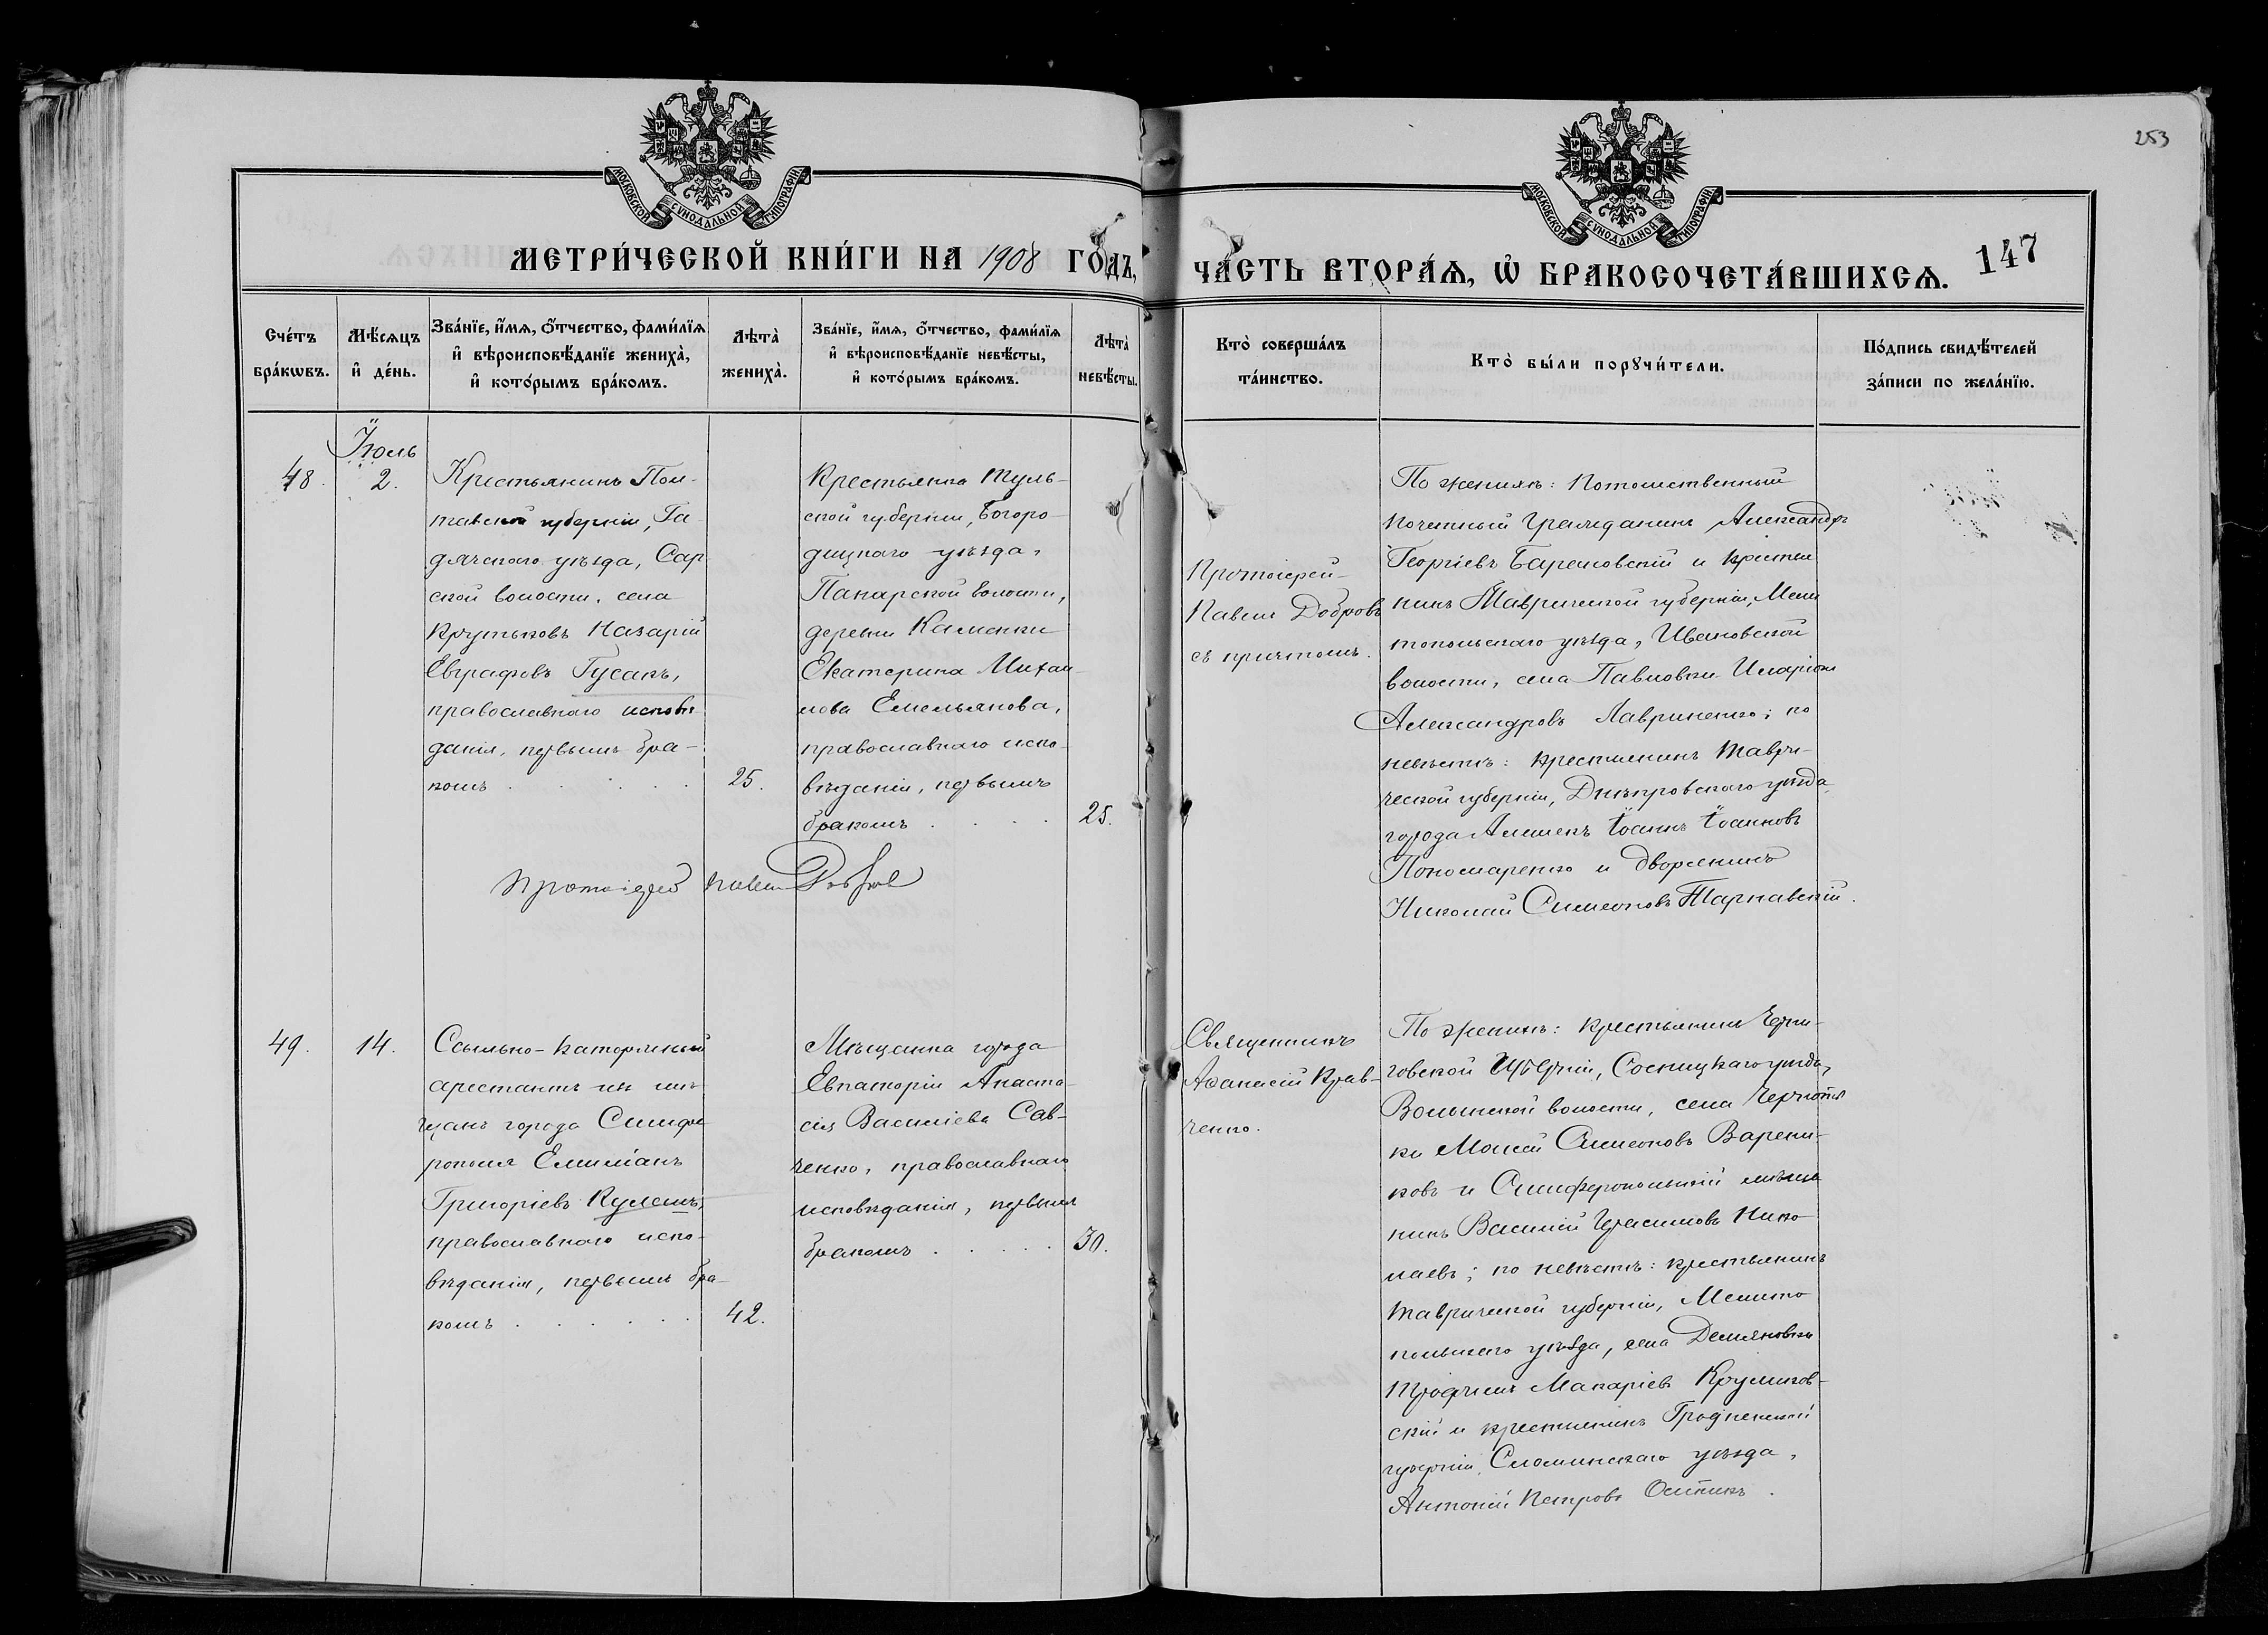 253
МОСКОВСКОЙ СѴНОДАЛЬНОЙ ТИПОГРАФІИ
МОСКОВСКОЙ СѴНОДАЛЬНОЙ ТИПОГРАФІИ
МЕТРИ́ЧЕСКОЙ КНИ́ГИ НА 1908 ГО́ДЪ,
ЧА́СТЬ ВТОРА́Ѧ, Ѽ БРАКОСОЧЕТА́ВШИХСѦ.
147
Сче́тъ
бра́кѡвъ.
Мѣ́сѧцъ
и҆ де́нь.
Зва́нїе, и҆́мѧ, ѻ҆́тчество, фами́лїѧ
и҆ вѣроисповѣ́данїе жениха̀,
и҆ кото́рымъ бра́комъ.
Лѣта̀
жениха̀.
Зва́нїе, и҆́мѧ, ѻ҆́тчество, фами́лїѧ
и҆ вѣроисповѣ́данїе невѣ́сты,
и҆ кото́рымъ бра́комъ.
Лѣта̀
невѣ́сты.
Кто̀ соверша́лъ
та́инство.
Кто̀ бы́ли порꙋчи́тели.
По́дпись свидѣ́телей
за́писи по жела́нїю.
Іюль
48.
2.
Крестьянинъ Пол-
тавской губерніи, Га-
дячскаго уѣзда, Сар
ской волости, села
Крутьковъ Назарій
Евграфовъ Гусакъ,
православнаго исповѣ
данія, первымъ бра-
комъ
25.
Крестьянка Туль-
ской губерніи, Богоро-
дицкаго уѣзда,
волости,
деревни Каменки
Екатерина Михаи-
лова Емельянова,
православнаго испо-
вѣданія, первымъ
бракомъ
25.
Протоіерей
Павелъ Добровъ
съ причтомъ.
По женихѣ: Потомственный
почетный гражданинъ Александръ
Георгіевъ Барановскій и крестья
нинъ Таврической губерніи, Мели
топольскаго уѣзда, Ивановской
волости, села Павловки Иларіонъ
Александровъ Лавриненко; по
невѣстѣ: крестьянинъ Таври-
ческой губерніи, Днѣпровскаго уѣзда,
города Алешекъ Іоаннъ Іоанновъ
Пономаренко и дворянинъ
Николай Симеоновъ Тарнавскій.
Протоіерей Павелъ Добровъ
49.
14.
Ссыльно-каторжный
арестантъ изъ мѣ
щанъ города Симфе
рополя Емиліанъ
Григоріевъ Кулешъ,
православнаго испо-
вѣданія, первымъ бра-
комъ
42.
Мѣщанка города
Евпаторіи Анаста-
сія Василіева Сав-
ченко, православнаго
исповѣданія, первымъ
бракомъ
30.
Священникъ
Аѳанасій Крав-
ченко.
По женихѣ: крестьянинъ Черни-
говской губерніи, Сосницкаго уѣзда,
Волынской волости, села
ки Моисей Симеоновъ Варени-
ковъ и Симферопольскій мѣща
нинъ Василій Герасимовъ Нико
лаевъ; по невѣстѣ: крестьянинъ
Таврической губерніи, Мелито
польскаго уѣзда, села Демяновки
Трофимъ Макаріевъ
скій и крестьянинъ Гродненской
губерніи, Слонимскаго уѣзда,
Антоній Петровъ